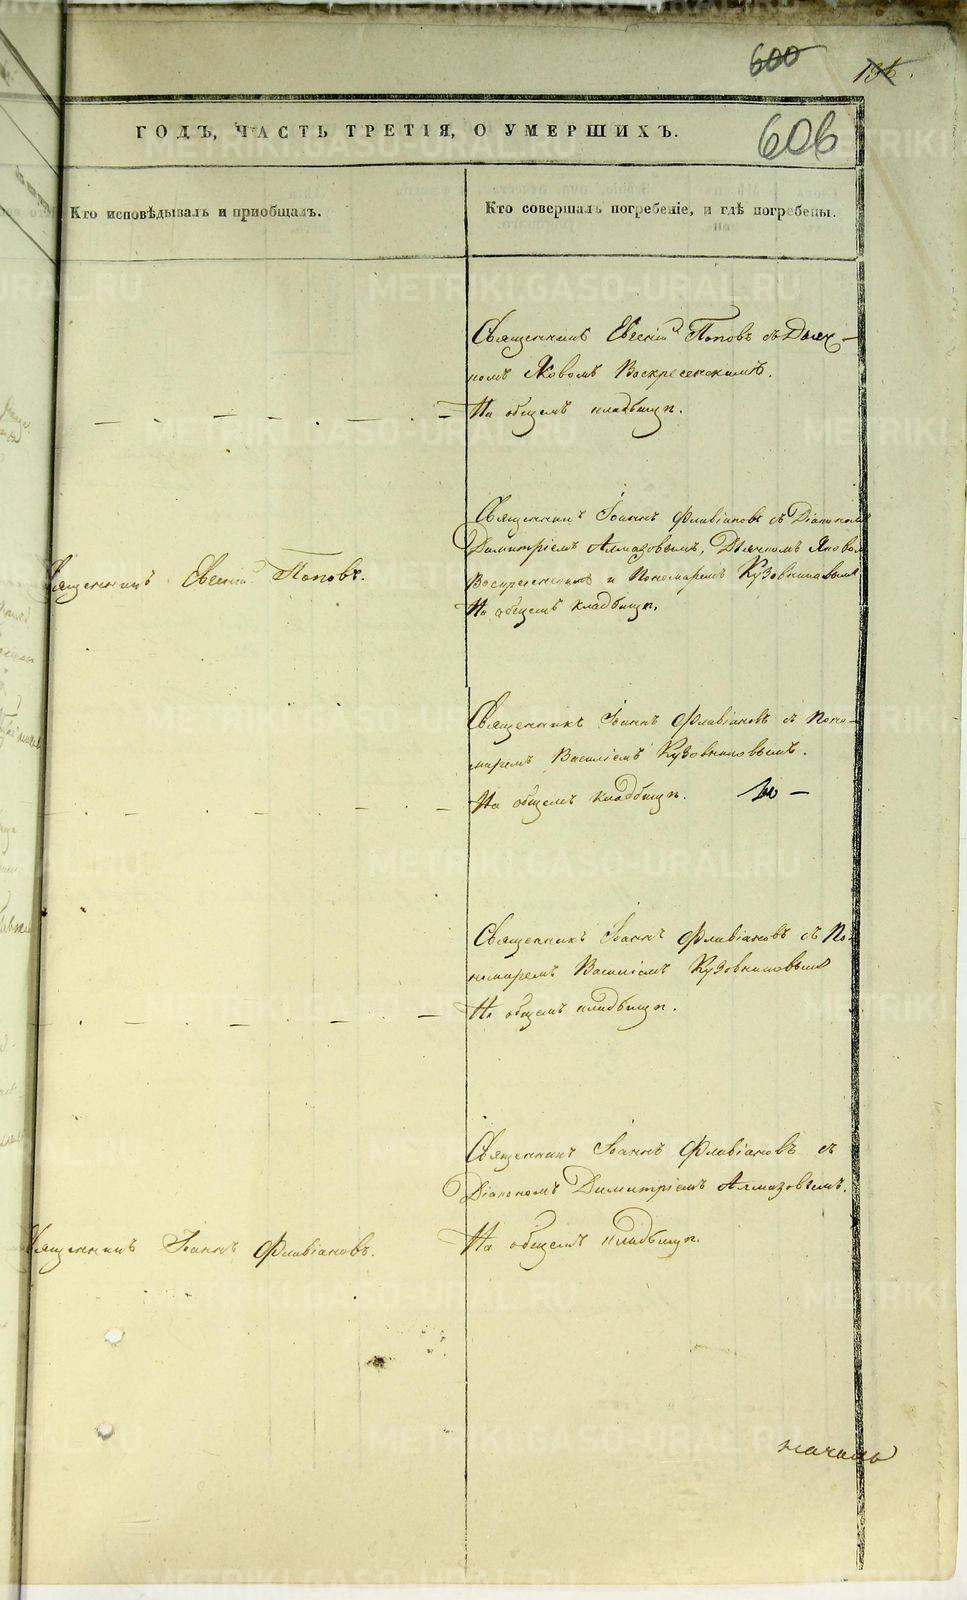 600
606
ГОДЪ, ЧАСТЬ ТРЕТІЯ, О УМЕРШИХЪ.
Кто исповѣдывалъ и пріобщалъ.
Кто совершалъ погребеніе, и гдѣ погребены.
Священникъ Евгеній Поповъ съ Дьяч-
комъ Яковомъ Воскресенскимъ.
На общемъ кладбищѣ.
Священникъ Евгеній Поповъ.
Священникъ Іоаннъ Флавіановъ съ Діакономъ
Димитріемъ Алмазовымъ, Дьячкомъ Яковомъ
Воскресенскимъ и Пономаремъ Кузовниковымъ
На общемъ кладбищѣ.
Священникъ Іоаннъ Флавіановъ съ Поно-
маремъ Василіемъ Кузовниковымъ.
На общемъ кладбищѣ.
Священникъ Іоаннъ Флавіановъ съ По-
номаремъ Василіемъ Кузовниковымъ
На общемъ кладбищѣ.
Священникъ Іоаннъ Флавіановъ.
Священникъ Іоаннъ Флавіановъ съ
Діакономъ Димитріемъ Алмазовымъ.
На общемъ кладбищѣ.
METRIKI.GASO-URAL.RU